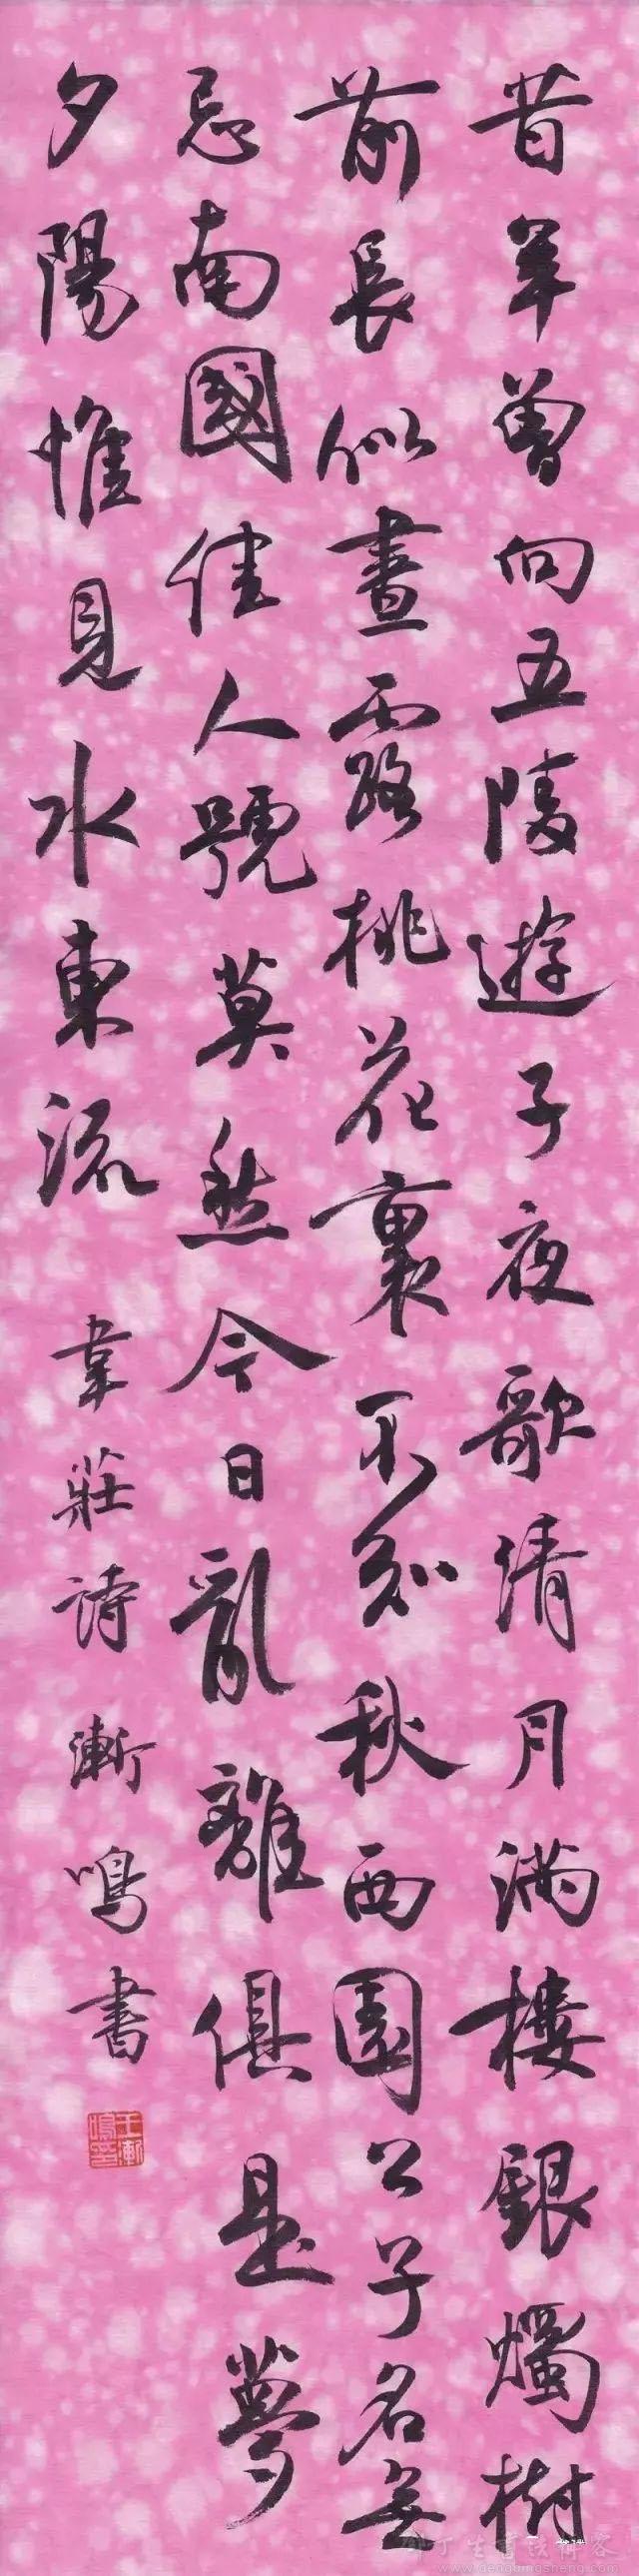 昔年曾向五陵遊子夜歌清月滿樓銀燭樹
前長似晝露桃花裏不知秋西園公子名無
忌南國佳人號莫愁今日亂離俱是夢
夕陽惟見水東流
韋莊詩漸鳴書